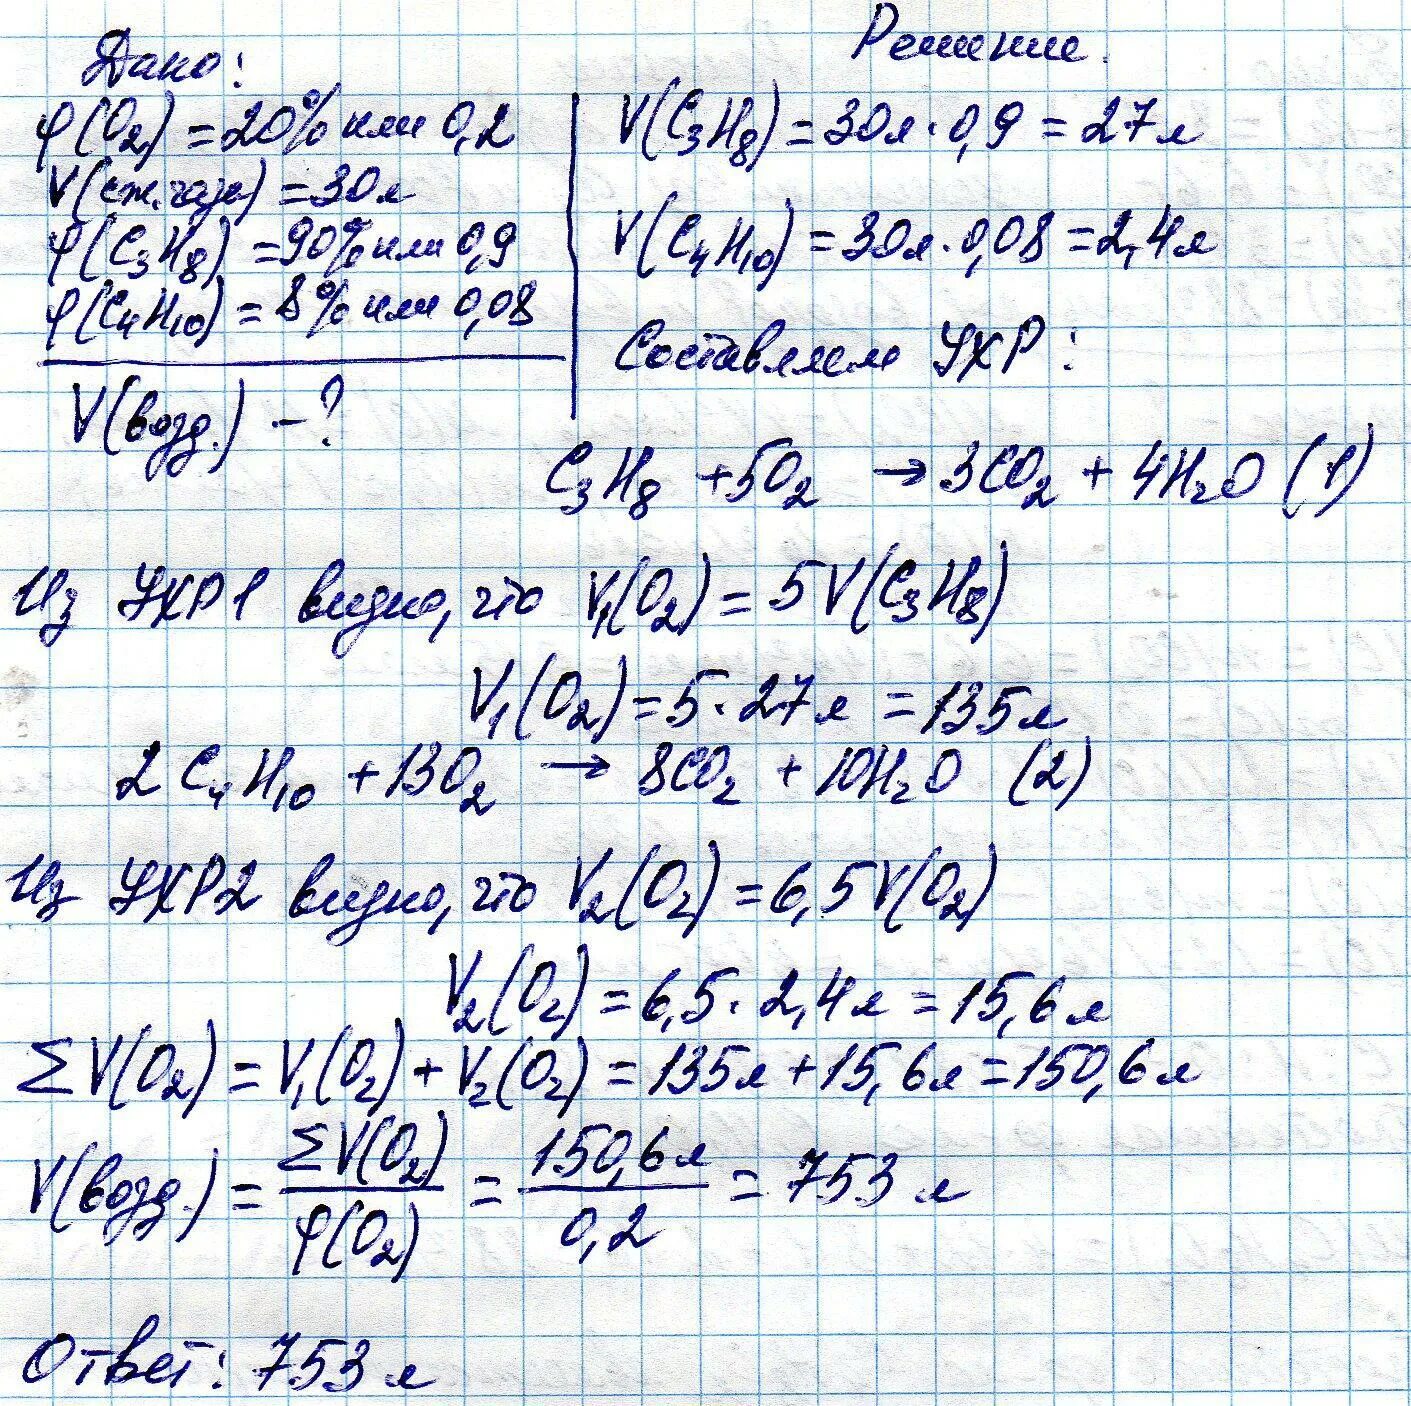 Дано:
φ(O₂) = 20% или 0,2
V(сж.газа) = 30л
φ(C₃H₈) = 90% или 0,9
φ(C₄H₁₀) = 8% или 0,08
V(возд.) - ?
Решение.
V(C₃H₈) = 30л · 0,9 = 27л
V(C₄H₁₀) = 30л · 0,08 = 2,4л
Составляем УХР:
C₃H₈ + 5O₂ → 3CO₂ + 4H₂O (1)
Из УХР1 видно, что V₁(O₂) = 5V(C₃H₈)
V₁(O₂) = 5 · 27л = 135л
2C₄H₁₀ + 13O₂ → 8CO₂ + 10H₂O (2)
Из УХР2 видно, что V₂(O₂) = 6,5V(O₂)
V₂(O₂) = 6,5 · 2,4л = 15,6л
ΣV(O₂) = V₁(O₂) + V₂(O₂) = 135л + 15,6л = 150,6л
V(возд.) = ΣV(O₂)/φ(O₂) = 150,6л/0,2 = 753л
Ответ: 753л